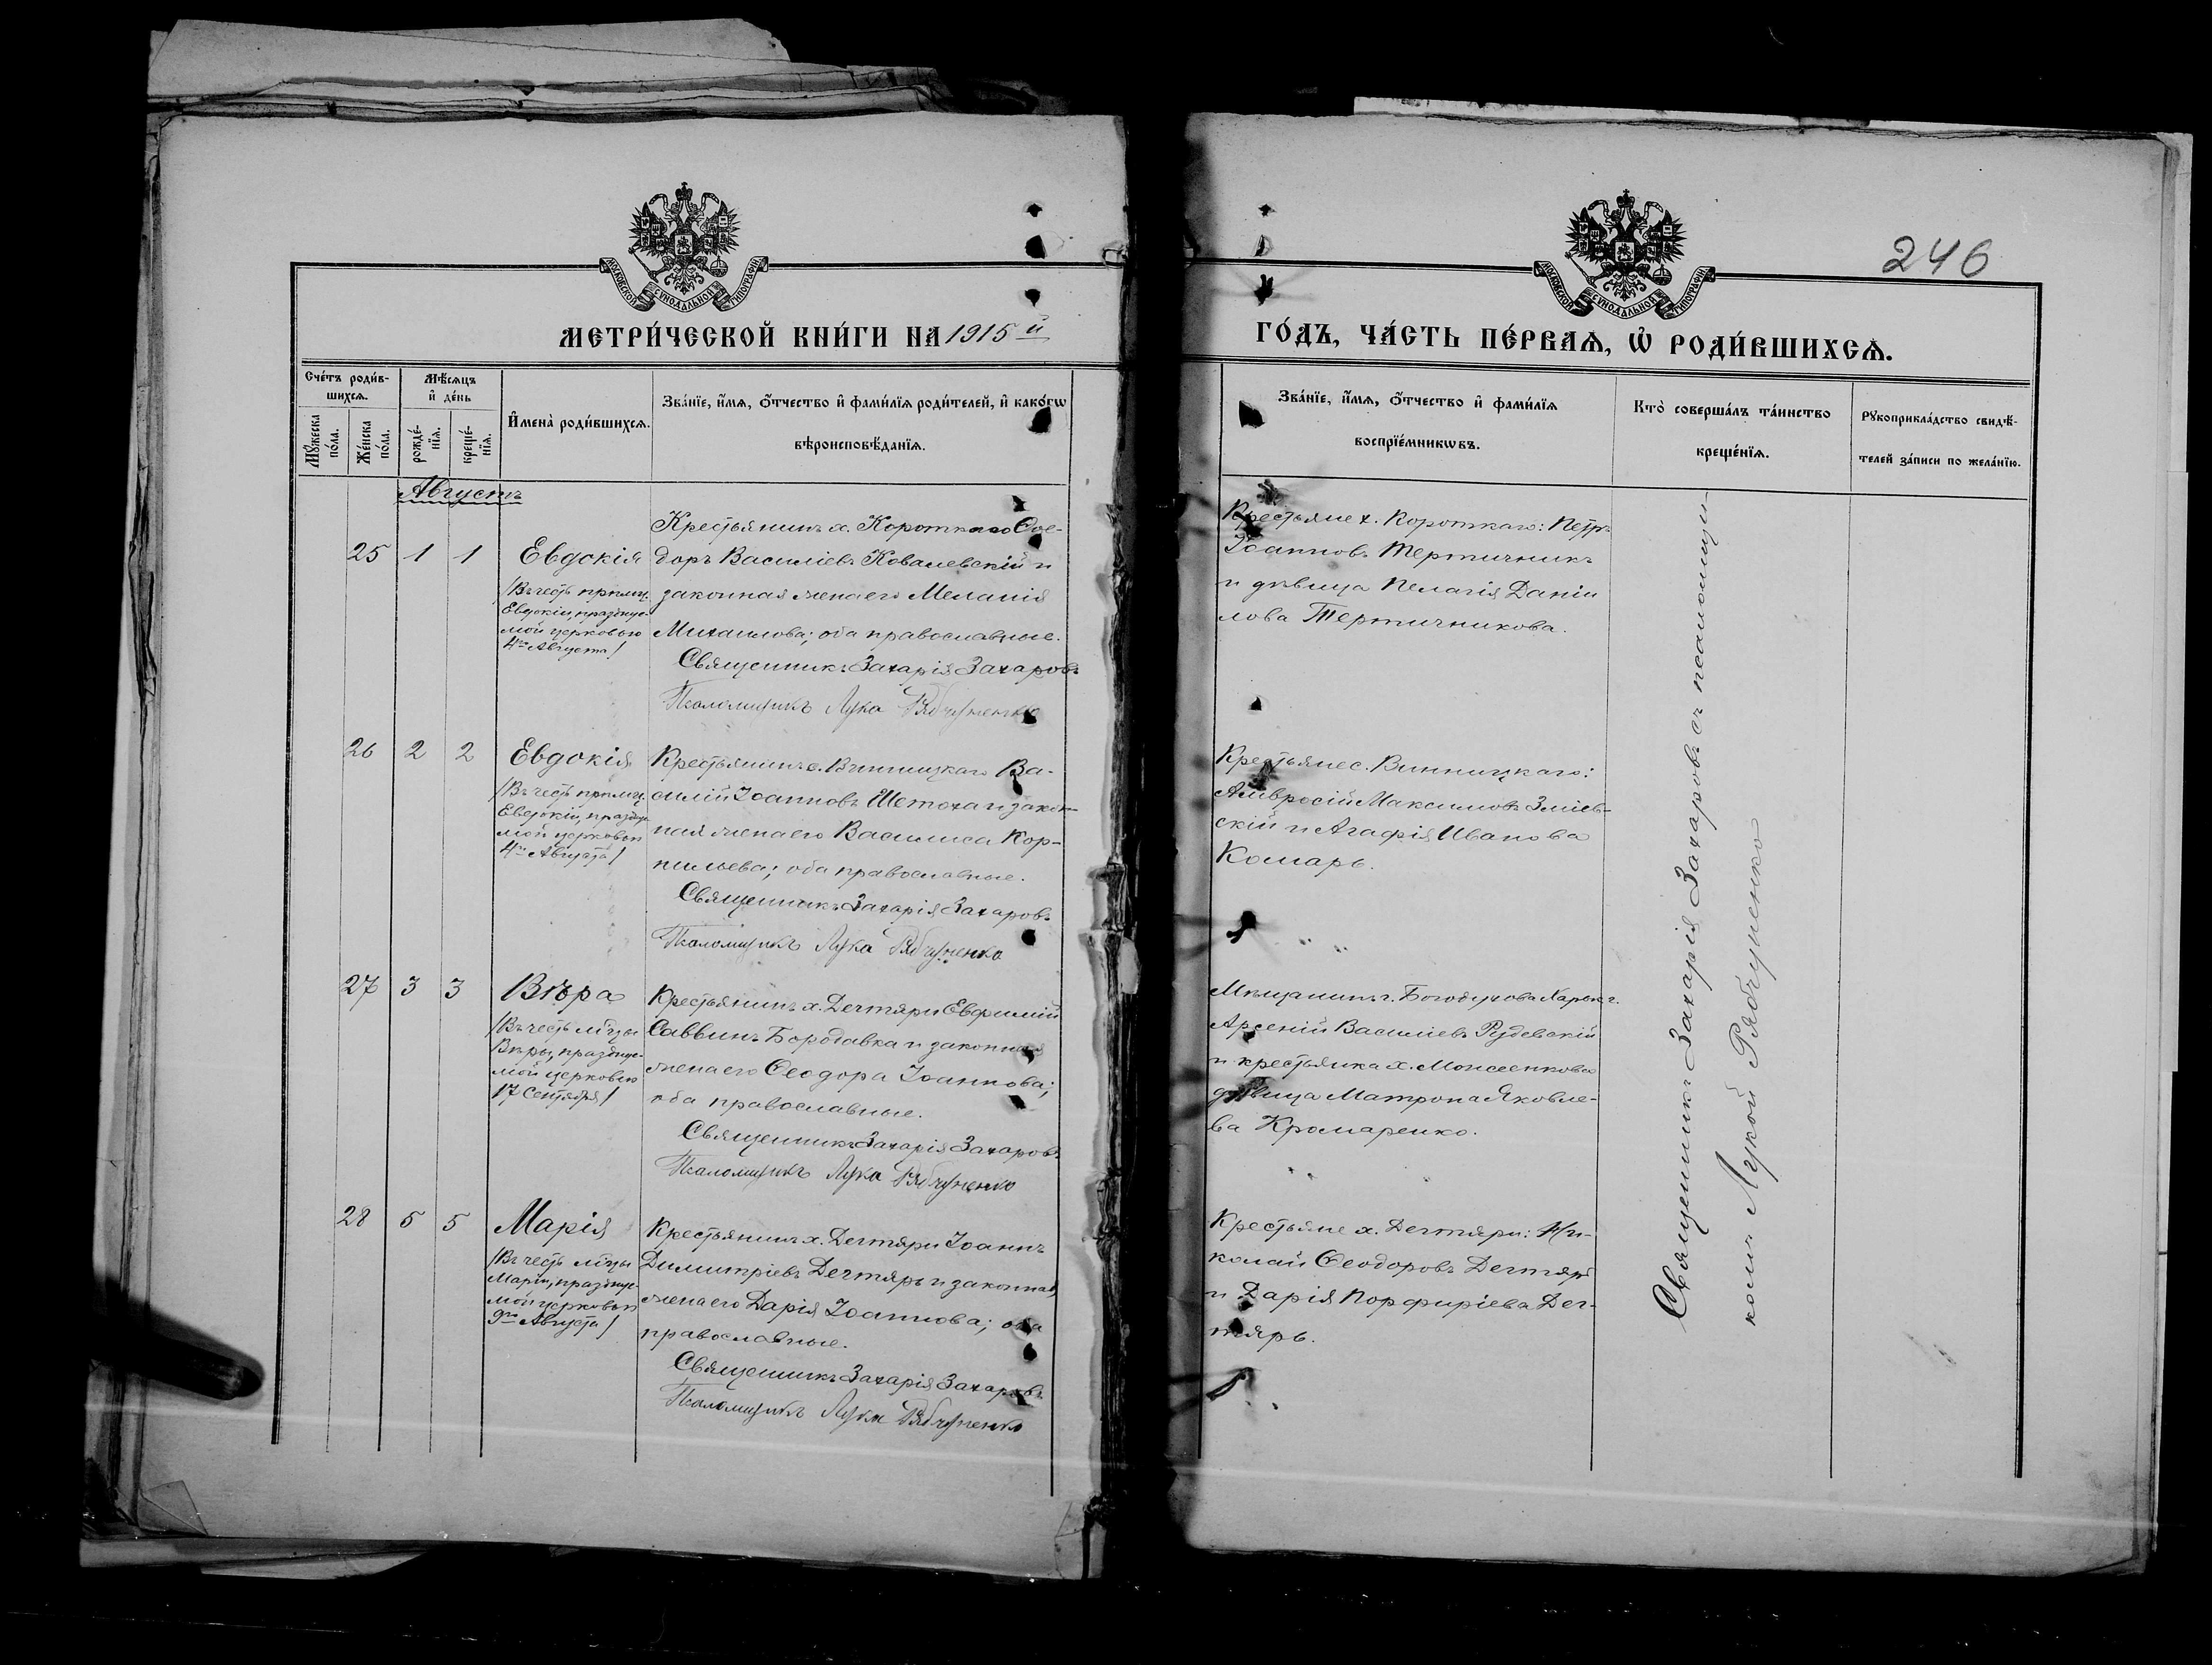 МОСКОВСКОЙ СѴНОДАЛЬНОЙ ТИПОГРАФІИ
МЕТРИ́ЧЕСКОЙ КНИ́ГИ НА 1915й
Сче́тъ роди́в-
шихсѧ.
Мѣ́сѧцъ
и҆ де́нь
Мꙋ́жеска
по́ла.
Же́нска
по́ла.
рожде́-
нїѧ.
креще́-
нїѧ.
И҆мена̀ роди́вшихсѧ.
Зва́нїе, и҆́мѧ, ѻ҆́тчество и҆ фами́лїѧ роди́телей, и҆ како́гѡ
вѣроисповѣ́данїѧ.
Августъ
25 1 1 Евдокія
/Въ честь прпмц.
Евдокіи, празднуе-
мой церковью
4го Августа/
Крестьянинъ х. Короткаго Ѳео-
доръ Василіевъ Ковалевскій и
законная жена его Меланія
Михаилова; оба православные.
Священникъ Захарія Захаровъ
Псаломщикъ Лука Рябчуненко
26 2 2 Евдокія
/Въ честь прпмц.
Евдокіи, праздну
мой церковью
4го Августа/
Крестьянинъ с. Винницкаго Ва-
силій Іоанновъ Шетоха и закон-
ная жена его Василиса Кор-
нильева; оба православные.
Священникъ Захарія Захаровъ
Псаломщикъ Лука Рябчуненко
27 3 3 Вѣра
/Въ честь мц‍цы
Вѣры, празднуе-
мой церковью
17 Сентября/
Крестьянинъ х. Дегтяри Евфимій
Саввинъ Бородавка и законная
жена его Ѳеодора Іоаннова;
оба православные.
Священникъ Захарія Захаровъ
Псаломщикъ Лука Рябчуненко
28 5 5 Марія
/Въ честь мц‍цы
Маріи, празднуе-
мой церковью
9го Августа/
Крестьянинъ х. Дегтяри Іоаннъ
Димитріевъ Дегтярь и законная
жена его Дарія Іоаннова; оба
православные.
Священникъ Захарія Захаровъ
Псаломщикъ Лука Рябчуненко
246
МОСКОВСКОЙ СѴНОДАЛЬНОЙ ТИПОГРАФІИ
ГО́ДЪ, ЧА́СТЬ ПЕ́РВАѦ, Ѡ҆ РОДИ́ВШИХСѦ.
Зва́нїе, и҆́мѧ, ѻ҆́тчество и҆ фами́лїѧ
воспрїе́мникѡвъ.
Кто̀ соверша́лъ та́инство
креще́нїѧ.
Рꙋкоприкла́дство свидѣ́-
телей за́писи по жела́нїю.
Крестьяне х. Короткаго: Петръ
Іоанновъ Тертичникъ
и дѣвица Пелагія Даніи
лова Тертичникова.
Крестьяне с. Винницкаго:
Амвросій Максимовъ Зміев-
скій и Агафія Иванова
Комарь.
Мѣщанинъ г. Богодухова Харьк. г.
Арсеній Василіевъ Рудевскій
и крестьянка х. Моисеенкова
дѣвица Матрона Яковле-
ва Крамаренко.
Крестьяне х. Дегтяри: Ни-
колай Ѳеодоровъ Дегтярь
и Дарія Порфиріева Дег-
тярь.
Священникъ Захарія Захаровъ съ псаломщи-
комъ Лукой Рябчуненко